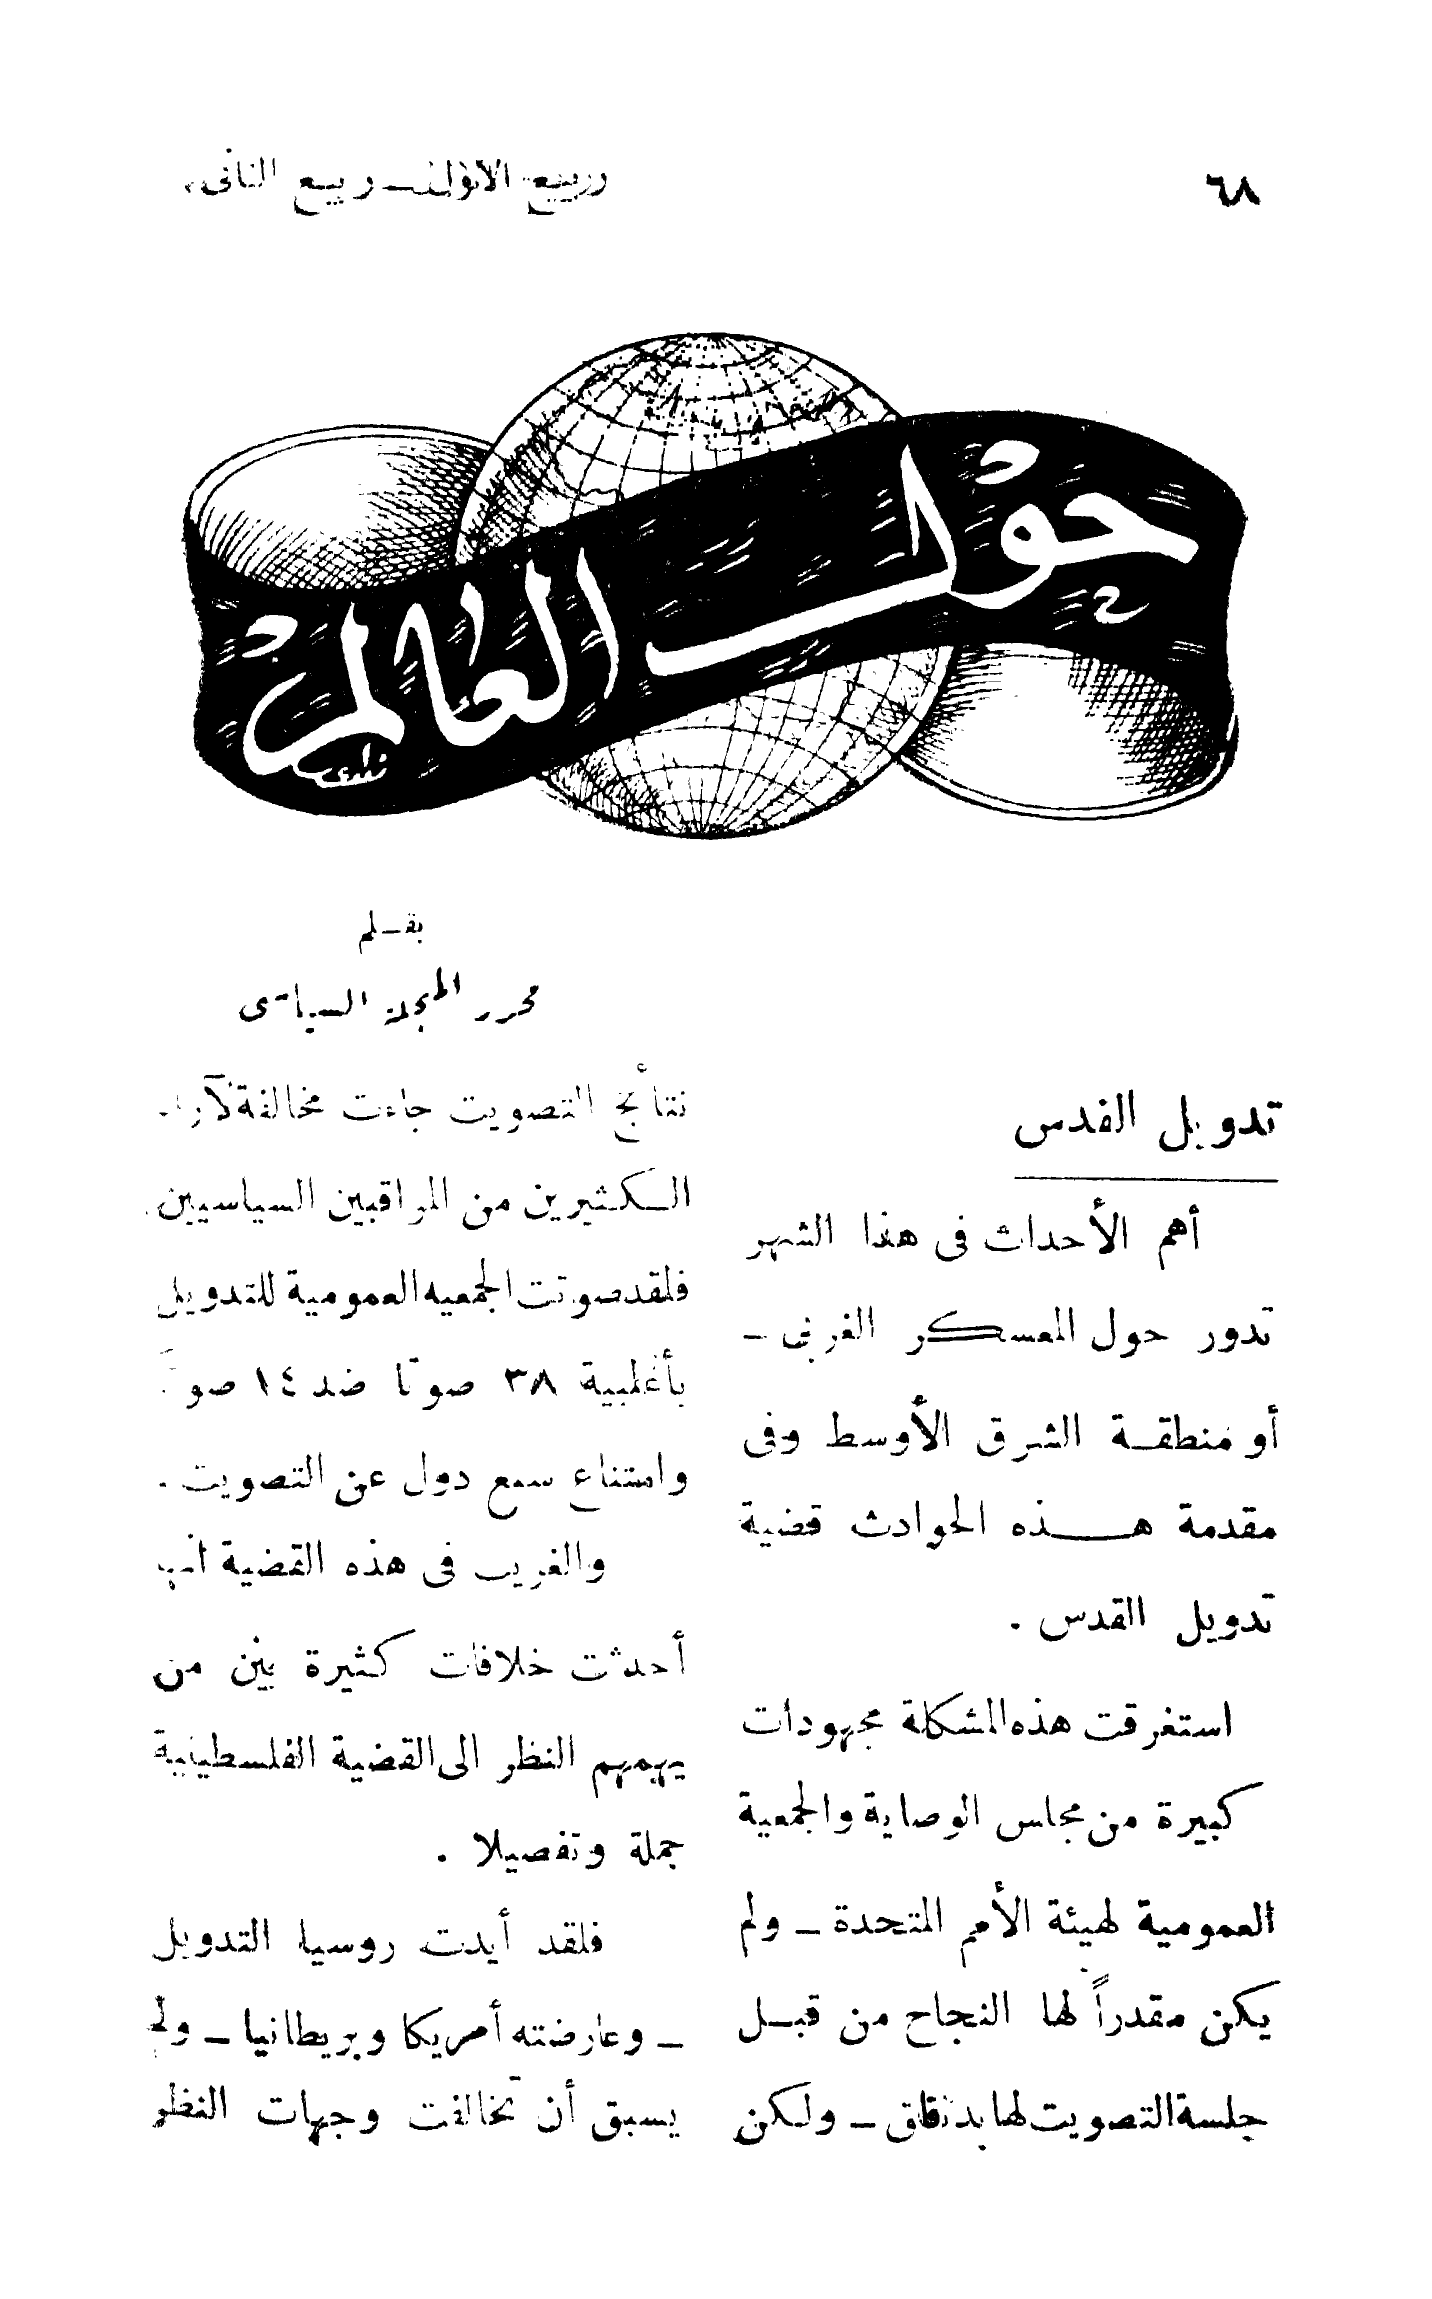 ٦٨
«ربيع الأول ــ ربيع الثانى»
حول العالم
بقـلم
محرر المجلة السياسى
تدويل القدس
أهم الأحداث فى هذا الشهر
تدور حول المعسكر الغربى –
أو منطقـة الشرق الأوسط وفى
مقدمة هـــذه الحوادث قضية
تدويل القدس .
استغرقت هذه المشكلة مجهودات
كبيرة من مجلس الوصاية والجمعية
العمومية لهيئة الأمم المتحدة – ولم
يكن مقدراً لها النجاح من قبـل
جلسة التصويت لها بدقائق – ولكن
نتائج التصويت جاءت مخالفة لآراء
الـكثيرين من المراقبين السياسيين .
فلقد صوتت الجمعيه العمومية للتدويل
بأغلبية ٣٨ صوتا ضد ١٤ صوتا
وامتناع سبع دول عن التصويت .
والغريب فى هذه القضية أنها
أحدثت خلافات كثيرة بين من
يهمهم النظر الى القضية الفلسطينية
جملة وتفصيلا .
فلقد أيدت روسيا التدويل
– وعارضته أمريكا وبريطانيا – ولم
يسبق أن تخالفت وجهات النظر